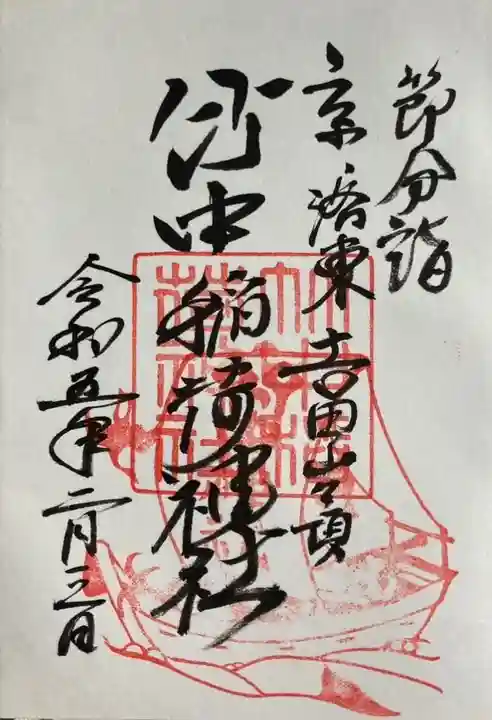 節分詣
京洛東吉田山々頂
竹中稲荷神社
令和五年二月三日